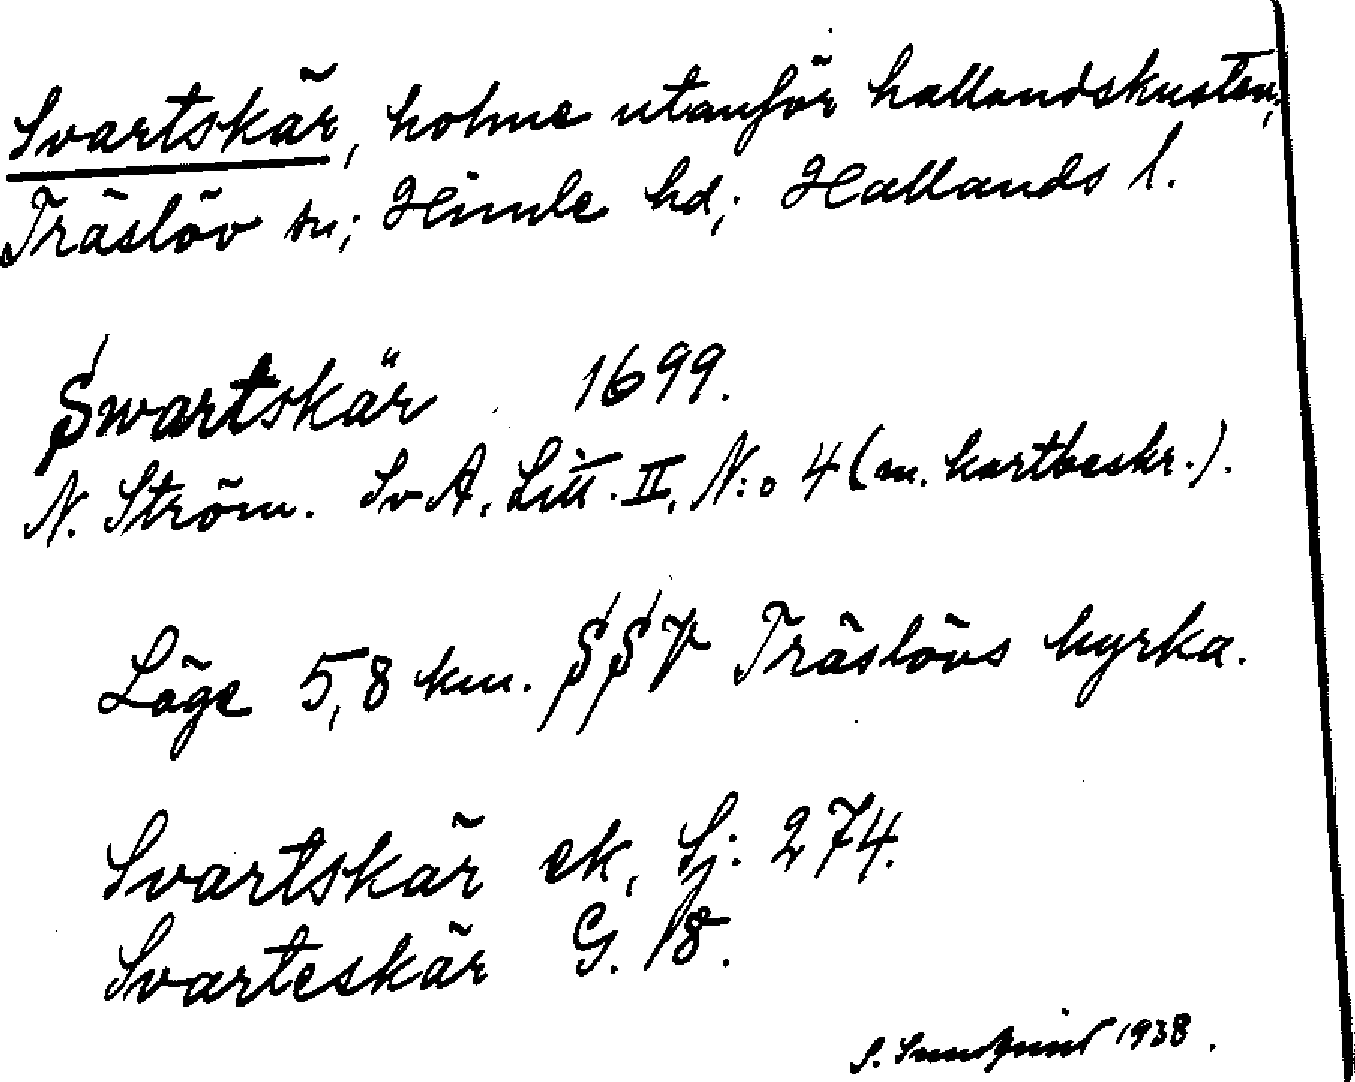 Svartskär, holme utanför hallandskusten,
Träslöv sn; Himle hd; Hallands l.
Swartskär 1699.
N. Ström. Sv A. Litt. II. N:o 4 (m. kartbeskr.).
Läge 5,8 km. SSV Träslövs kyrka.
Svartskär ek, Sj: 274.
Svarteskär G. 18.
S. 1938.